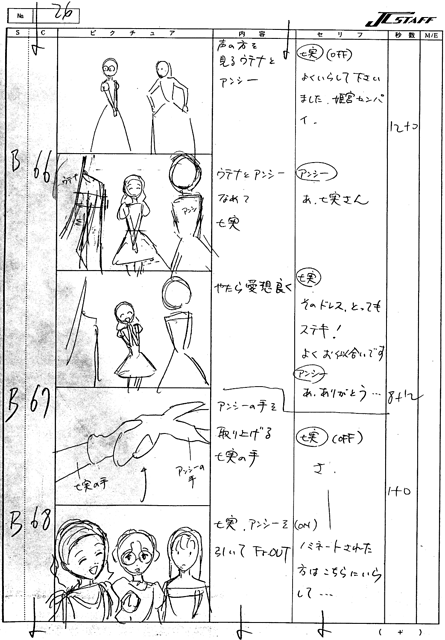 No. 26
J.C.STAFF
S
C
ピクチュア
内容
セリフ
秒数
M/E
声の方を
見るウテナと
アンシー
七実 (OFF)
よくいらして下さい
ました、姫宮センパ
イ。
12+0
B 66
ウテナ
アンシー
ウテナとアンシー
なめて
七実
アンシー
あ、七実さん
やたら愛想良く
七実
そのドレス、とっても
ステキ!
よくお似合いです
アンシー
あ、ありがとう…
8+12
B 67
七実の手
アンシーの
手
アンシーの手を
取り上げる
七実の手
七実 (OFF)
さ、
1+0
B 68
七実、アンシーを
引いて Fr.OUT
(ON)
ノミネートされた
方はこちらにいら
して…
( + )